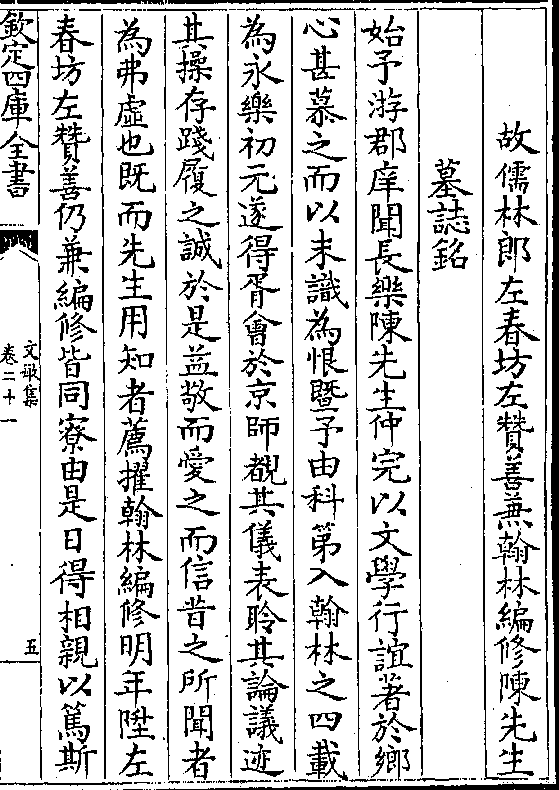 故儒林郎左春坊左贊善兼翰林編修陳先生
墓誌銘
始予游郡庠聞長樂陳先生仲完以文學行誼著於鄉
心甚慕之而以未識為恨暨予由科第入翰林之四載
為永樂初元遂得胥會於京師覩其儀表聆其論議迹
其操存踐履之誠於是益敬而愛之而信昔之所聞者
為弗虛也既而先生用知者薦擢翰林編修明年陞左
春坊左贊善仍兼編修皆同寮由是日得相親以篤斯
欽定四庫全書
文敏集
卷二十一
五